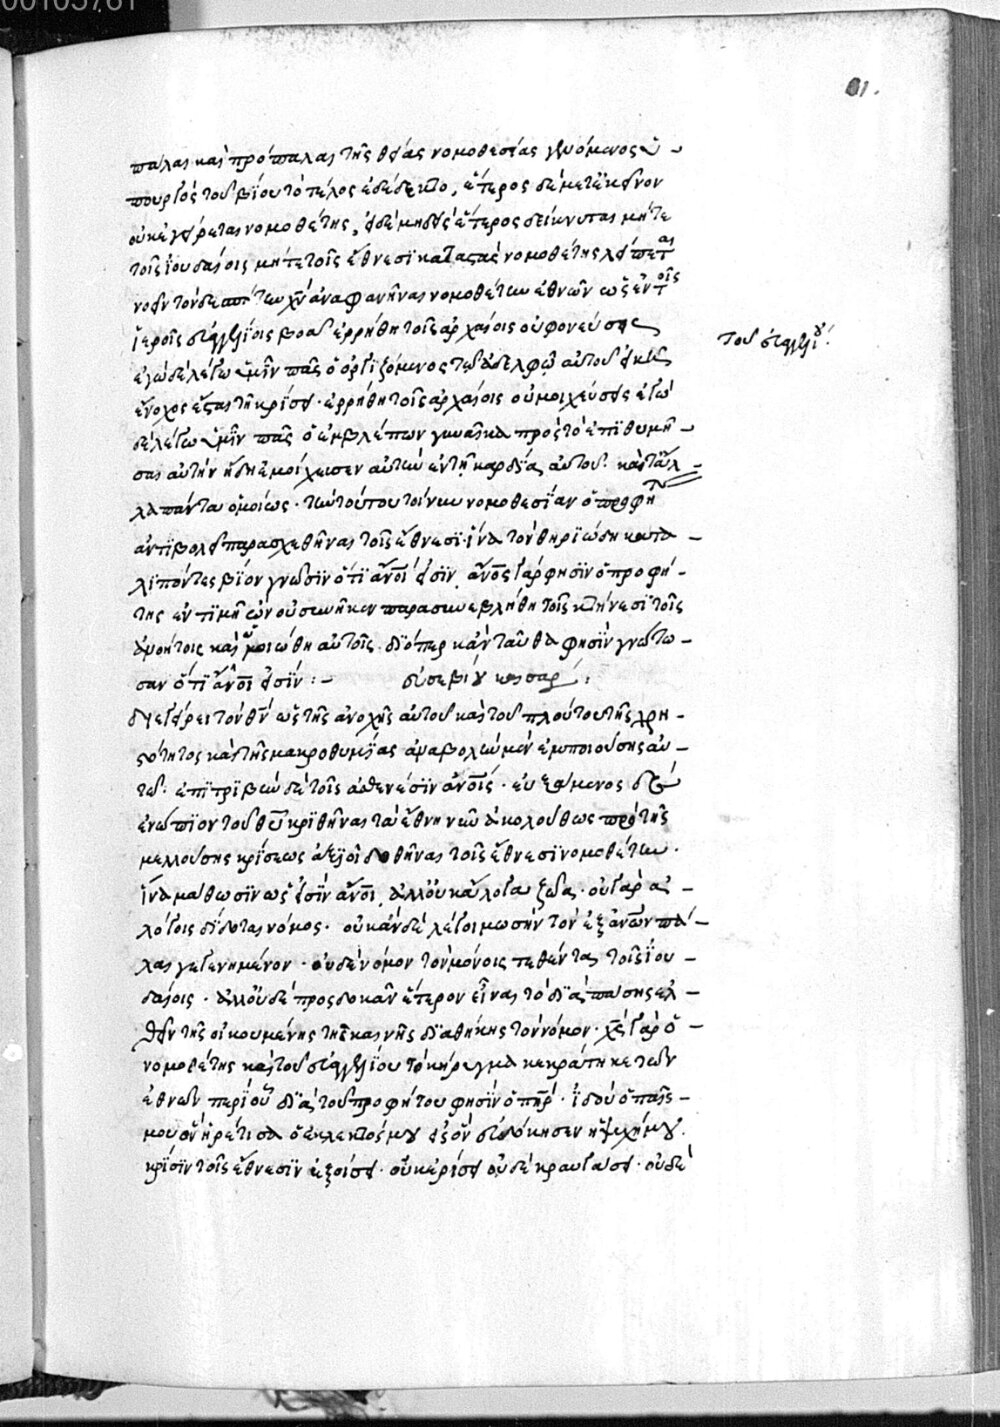 81.
πάλαι καὶ πρόπαλαι τῆς θείας νομοθεσίας γενόμενος ὑ-
πουργὸς τοῦ βίου τὸ τέλος ἐδέδεκτο, ἕτερος δὲ μετ' ἐκεῖνον
οὐκ ἐγείρεται νομοθέτης, εἰ δὲ μηδεὶς ἕτερος δείκνυται μήτε
τοῖς ἰουδαίοις μήτε τοῖς ἔθνεσι καταστὰς νομοθέτης λείπεται
νοεῖν τόνδε αὐτὸν χν ἀναφανῆναι νομοθέτην ἐθνῶν ὡς ἐν τοῖς
ἱεροῖς εὐαγγελίοις βοᾶν ἐρρήθη τοῖς ἀρχαίοις οὐ φονεύσεις
τοῦ εὐαγγελίου:
ἐγὼ δὲ λέγω ὑμῖν πᾶς ὁ ὀργιζόμενος τῷ ἀδελφῷ αὐτοῦ εἰκῇ
ἔνοχος ἔσται τῇ κρίσει. ἐρρήθη τοῖς ἀρχαίοις οὐ μοιχεύσεις ἐγὼ
δὲ λέγω ὑμῖν πᾶς ὁ ἐμβλέπων γυναῖκα πρὸς τὸ ἐπιθυμῆ-
σαι αὐτὴν ἤδη ἐμοίχευσεν αὐτὴν ἐν τῇ καρδίᾳ αὐτοῦ. καὶ τἆλ-
λα πάντα ὁμοίως. τὴν τούτου τοίνυν νομοθεσίαν ὁ προφήτης
ἀντιβολεῖ παρασχεθῆναι τοῖς ἔθνεσι. ἵνα τὸν θηριώδη κατα-
λιπόντες βίον γνῶσιν ὅτι ἄνοι εἰσίν, ἄνος γάρ φησιν ὁ προφή-
της ἐν τιμῇ ὢν οὐ συνῆκεν παρασυνεβλήθη τοῖς κτήνεσι τοῖς
ἀνοήτοις καὶ ὡμοιώθη αὐτοῖς. διόπερ κἀνταῦθα φησὶν γνώτω-
σαν ὅτι ἄνοι εἰσίν :- εὐσεβίου καισαρ:
διεγείρει τὸν θν ὡς τῆς ἀνοχῆς αὐτοῦ καὶ τοῦ πλούτου τῆς χρη-
στότητος καὶ τῆς μακροθυμίας ἀναβολὴν μὲν ἐμποιούσης αὐ-
τῷ. ἐπιτριβὴν δὲ τοῖς ἀσθενέσιν ἀνοις. εὐξάμενος δὲ
ἐνώπιον τοῦ θυ κριθῆναι τὰ ἔθνη νῦν ἀκολούθως πρὸ τῆς
μελλούσης κρίσεως ἀξιοῖ δοθῆναι τοῖς ἔθνεσι νομοθέτην.
ἵνα μάθωσιν ὡς εἰσὶν ἄνοι, ἀλλ' οὐκ ἄλογα ζῶα. οὐ γὰρ ἀ-
λόγοις δίδοται νόμος. οὐκ ἂν δὲ λέγοι μωσῆν τὸν ἐξ ἀνων πά-
λαι γεγενημένον. οὐδὲ νόμον τὸν μόνοις τεθέντα τοῖς ἰου-
δαίοις. ἀλλ' οὐδὲ προσδοκᾶν ἕτερον εἶναι τὸ διὰ πάσης ἐλ-
θεῖν τῆς οἰκουμένης τῆς καινῆς διαθήκης τὸν νόμον. χς γὰρ ὁ-
νομοθέτης καὶ τοῦ εὐαγγελίου τὸ κήρυγμα κεκράτηκε τῶν
ἐθνῶν περὶ οὗ διὰ τοῦ προφήτου φησὶν ὁ πηρ. ἰδοὺ ὁ παῖς-
μου ὃν ᾑρέτισα ὁ ἐκλεκτός μου εἰς ὃν εὐδόκησεν ἡ ψυχή μου.
κρίσιν τοῖς ἔθνεσιν ἐξοίσει. οὐκ ἐρίσει οὐδὲ κραυγάσει. οὐδὲ